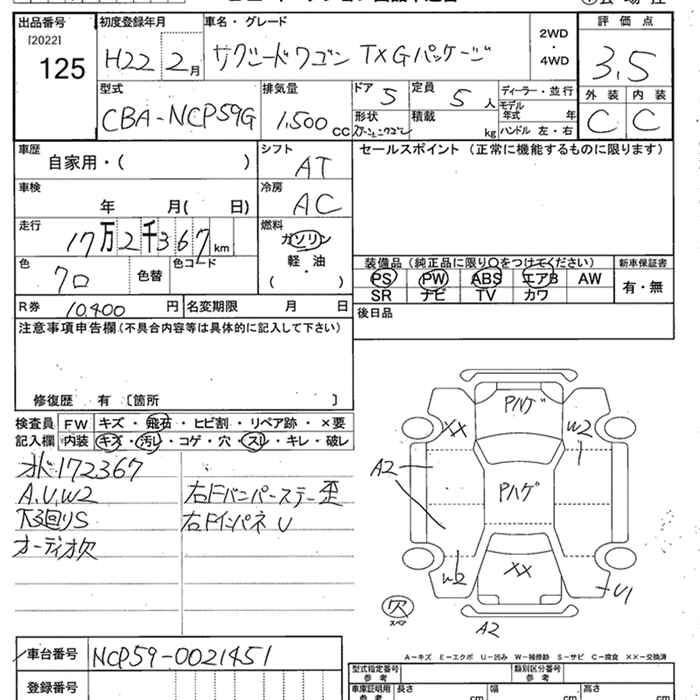 出品番号 初度登録年月 車名・グレード 評価点
[2022] 125
H22 2月 サクシードワゴン TX Gパッケージ 2WD・4WD 3.5
外装 内装
C C
型式 排気量 ドア 定員 ディーラー・並行
CBA-NCP59G 1,500 CC 5 5人 モデル年式 年
形状 積載 kg ハンドル 左・右
車歴 自家用・( )
シフト AT
セールスポイント(正常に機能するものに限ります)
車検 年 月( 日)
冷房 AC
走行 17万2千367km
燃料 ガソリン 軽・油 ( )
色 クロ 色替 色コード
装備品(純正品に限り○をつけてください) 新車保証書
PS PW ABS エアB AW 有・無
SR ナビ TV カワ
R券 10,400円 名変期限 月 日
後日品
注意事項申告欄(不具合内容等は具体的に記入して下さい)
修復歴 有 〔箇所 〕
検査員記入欄 FW キズ・飛石・ヒビ割・リペア跡・×要
内装 キズ・汚レ・コゲ・穴・スレ・キレ・破レ
オド172367
A.U.W2 右Fバンパーステー歪
下廻りS 右Fインパネ U
オーディオ欠
Pハゲ
XX W2
A2
Pハゲ
W2 XX U1
欠
スペア
A2
A-キズ E-エクボ U-凹み W-補修跡 S-サビ C-腐食 ××-交換済
車台番号 NCP59-0021451
登録番号
型式指定番号 参考 類別区分番号 参考
車庫証明用 参考 長さ cm 幅 cm 高さ cm